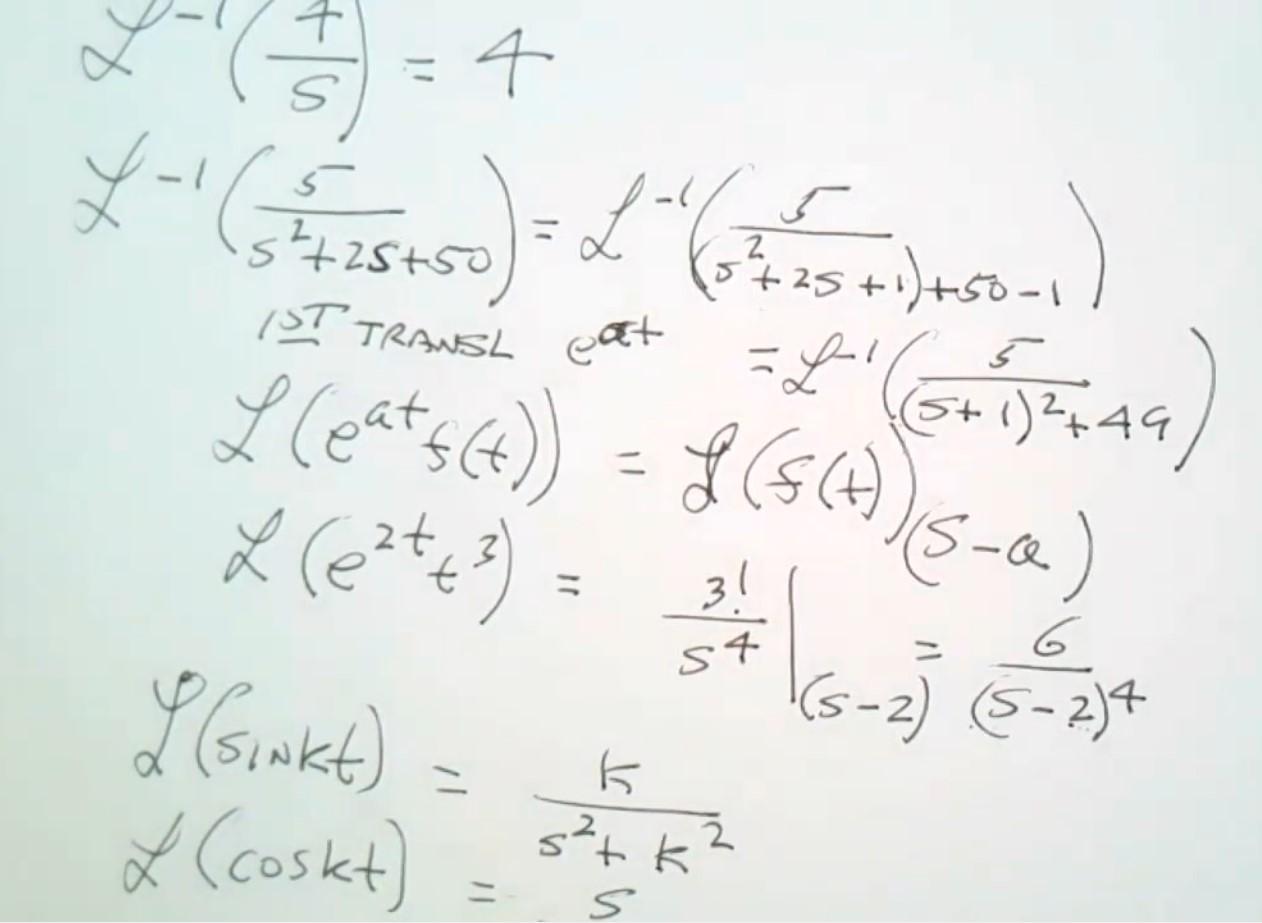 ℒ⁻¹(4/s) = 4
ℒ⁻¹(5/(s²+2s+50)) = ℒ⁻¹(5/((s²+2s+1)+50-1))
1ST TRANSL e^{at} = ℒ⁻¹(5/((s+1)²+49))
ℒ(e^{at}f(t)) = ℒ(f(t))(s-a)
ℒ(e^{2t}t³) = 3!/s⁴|(s-2) = 6/(s-2)⁴
ℒ(sinkt) = k/(s²+k²)
ℒ(coskt) = s